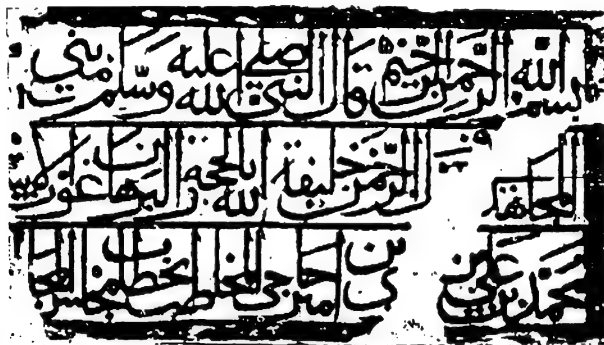 بسم الله الرحمن الرحيم قال النبي صلى الله عليه وسلم من بنى
المجاهد الرحمن خليفة الله بالحجة والبرهان غوث
محمد بن المخاطب بخطاب مجلس المجالس